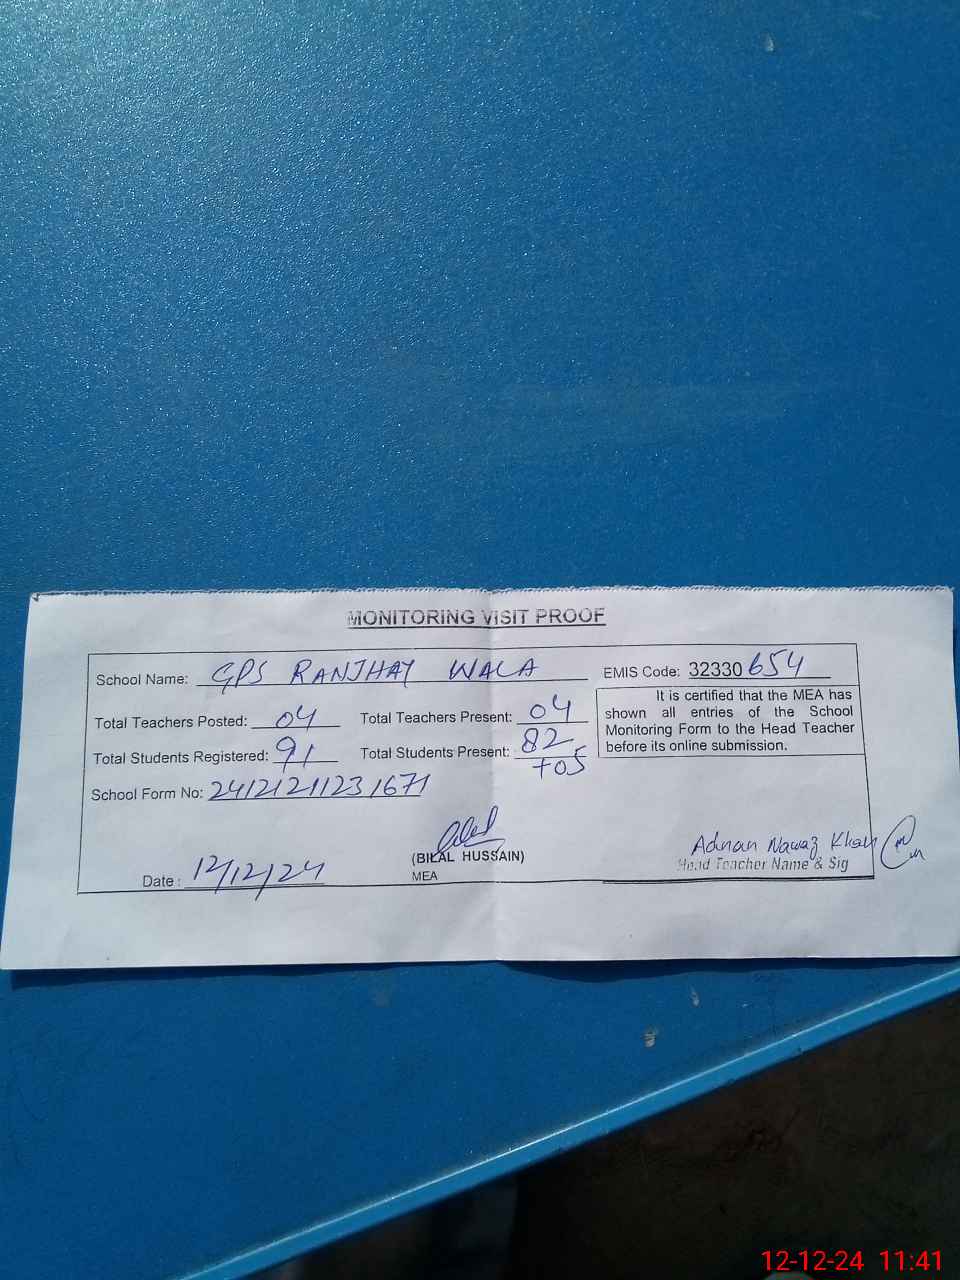 MONITORING VISIT PROOF
School Name: GPS RANJHAY WALA EMIS Code: 32330654
Total Teachers Posted: 04 Total Teachers Present: 04
Total Students Registered: 91 Total Students Present: 82
+05
It is certified that the MEA has
shown all entries of the School
Monitoring Form to the Head Teacher
before its online submission.
School Form No:
Date: 12/12/24
(BILAL HUSSAIN)
MEA
Adnan Nawaz Khan
Head Teacher Name & Sig
12-12-24 11:41